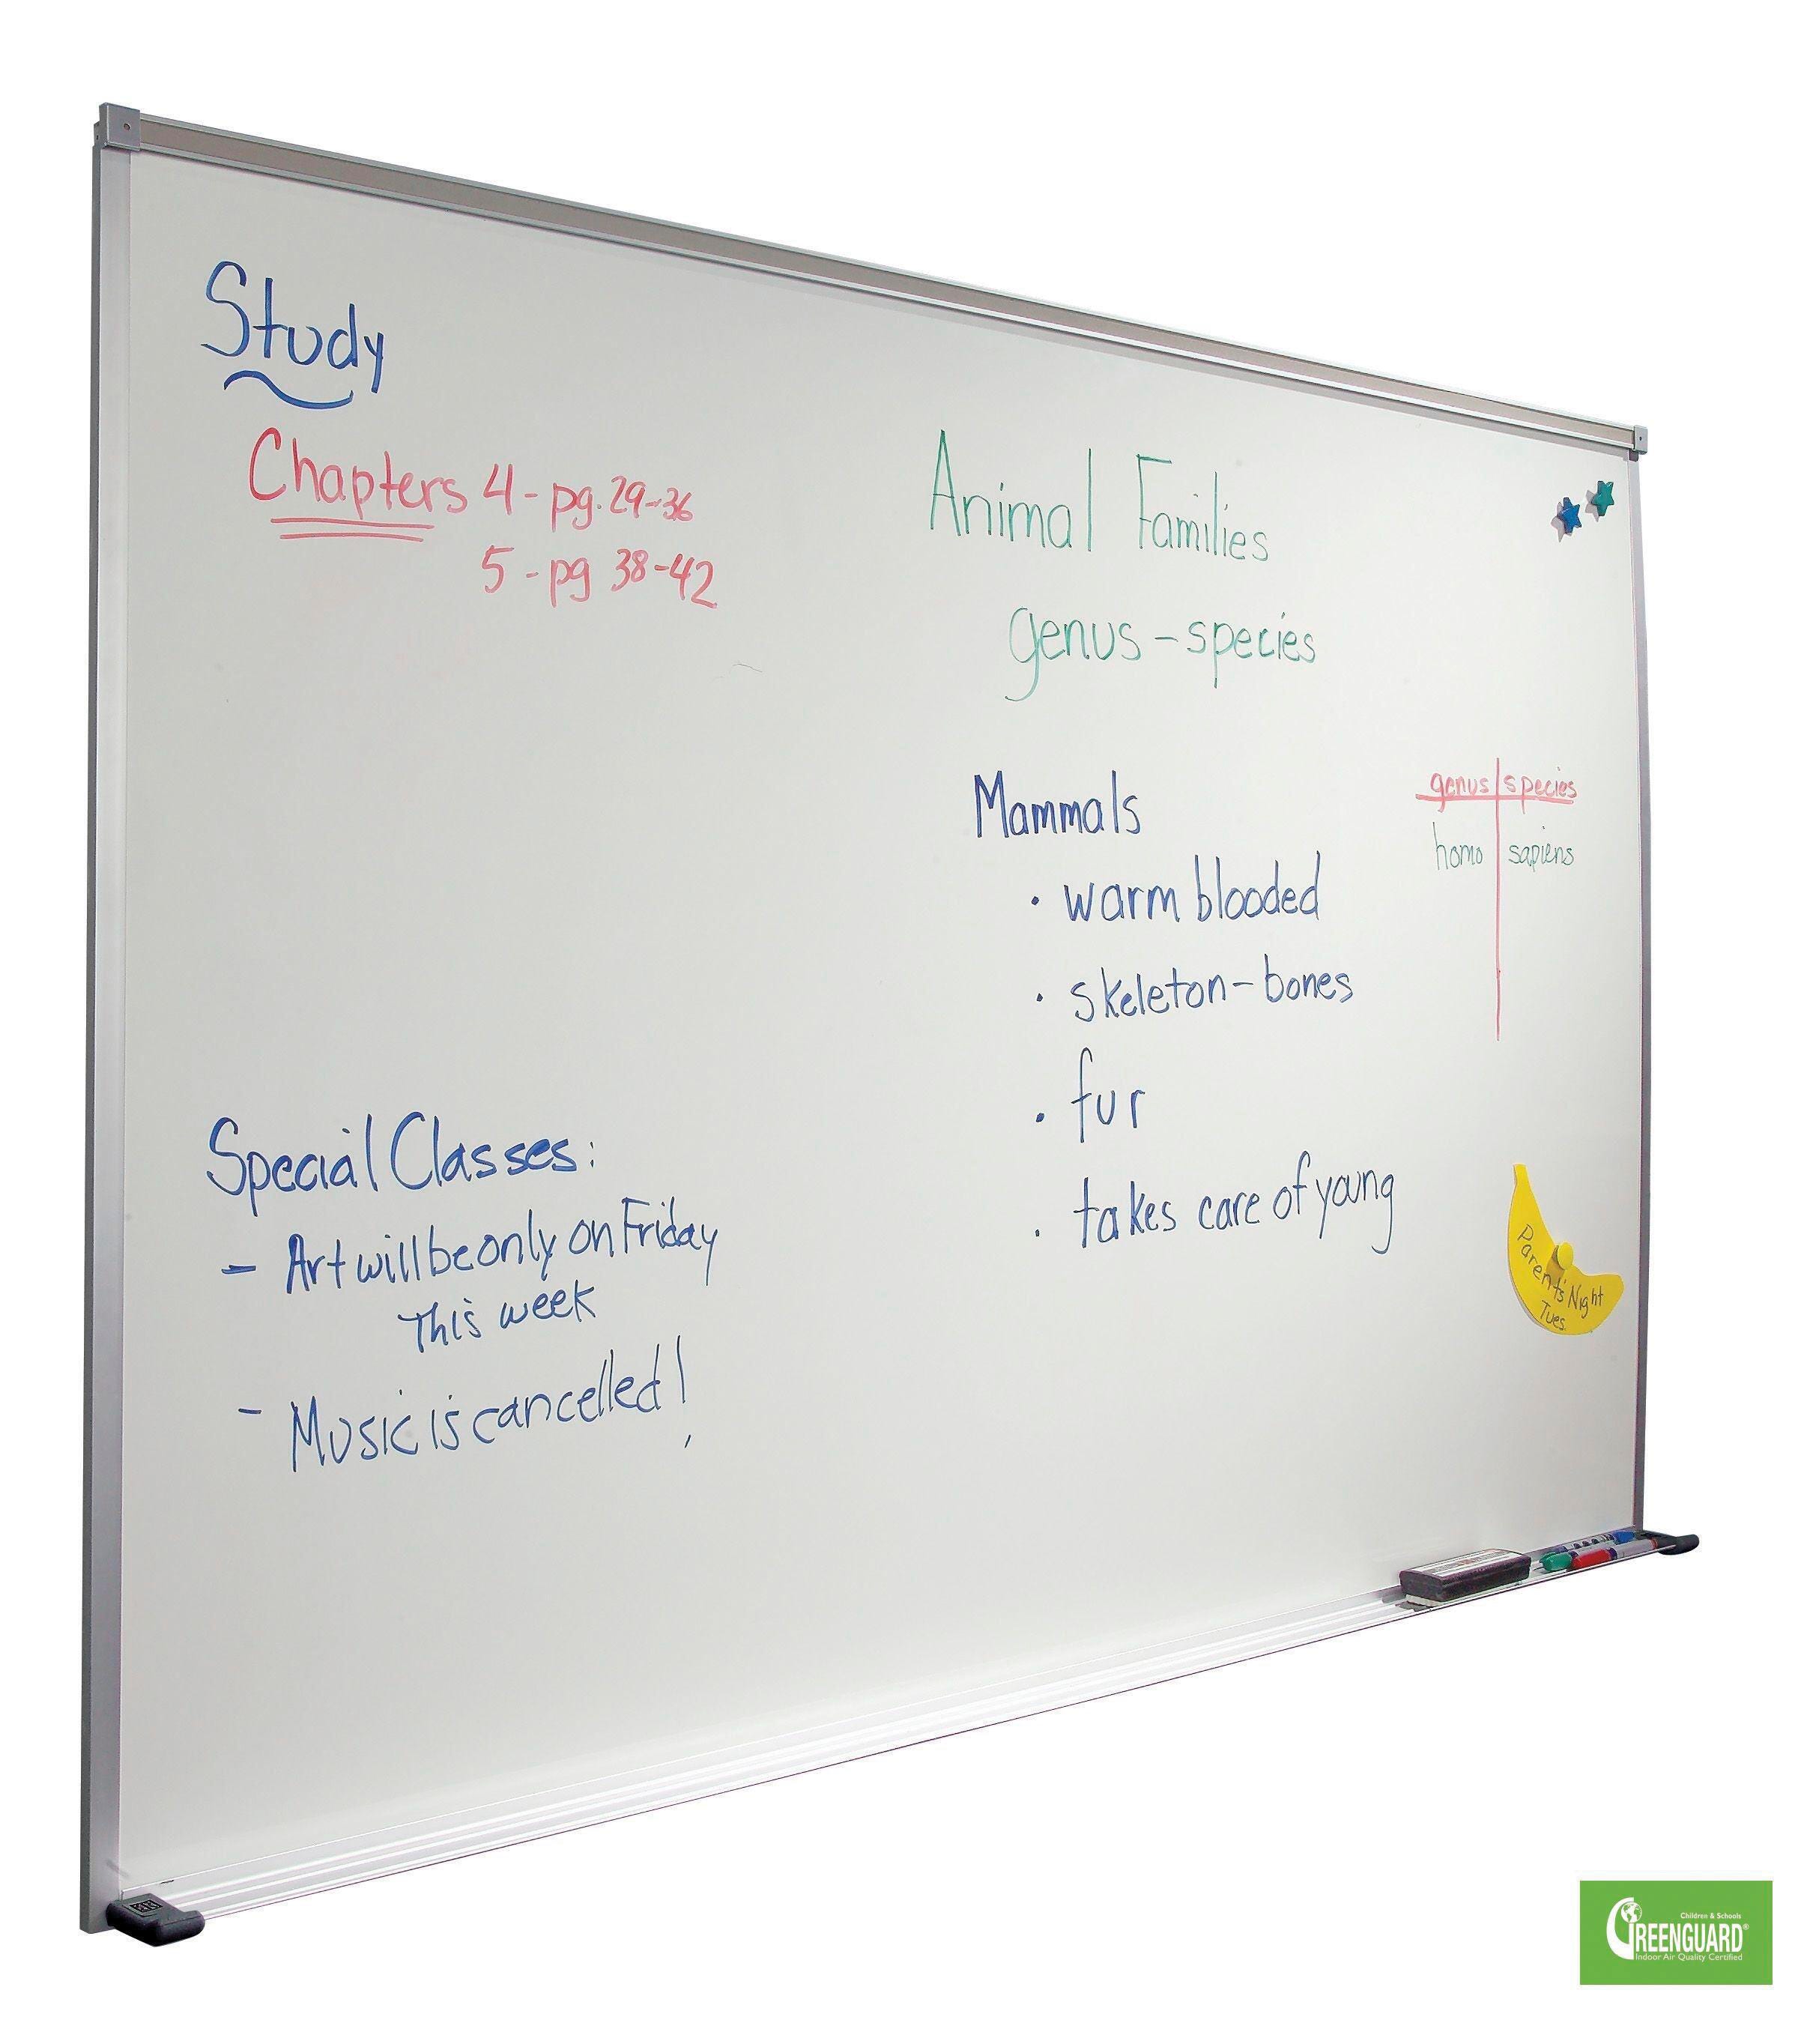 Study
Chapters 4 - pg. 29-36
5 - pg 38-42
Special Classes:
- Art will be only on Friday
This week
- Music is cancelled!
Animal Families
genus - species
Mammals
• warm blooded
• skeleton - bones
• fur
• takes care of young
genus | species
homo | sapiens
Parent's Night
Tues.
Children & Schools
GREENGUARD®
Indoor Air Quality Certified